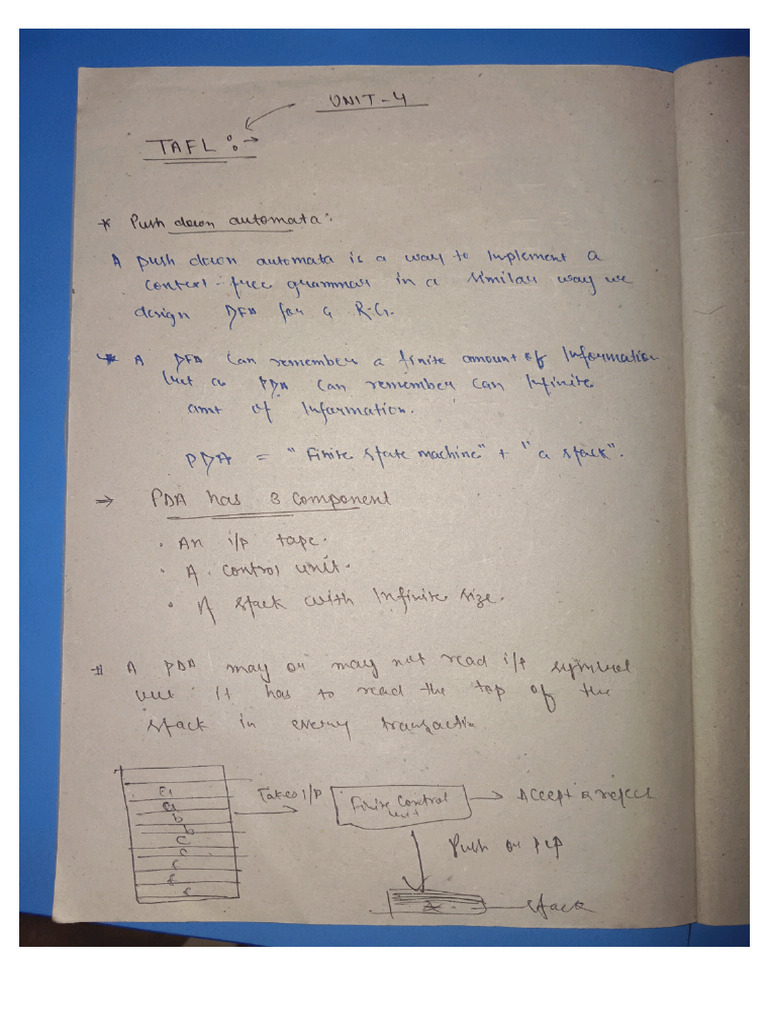 UNIT-4
TAFL :→
* Push down automata :
A push down automata is a way to Implement a
context-free grammar in a similar way we
design DFA for a R.G.
* A DFA can remember a finite amount of Information
but a PDA can remember can Infinite
amt of Information.
PDA = "Finite state machine" + "a stack".
⇒ PDA has 3 component
· An i/p tape.
· A control unit.
· A stack with Infinite size.
A PDA may or may not read i/p symbol
but it has to read the top of the
stack in every transaction
Takes I/P
Finite Control
unit
→ Accept or reject
a
a
b
b
c
c
Push or pop
stack